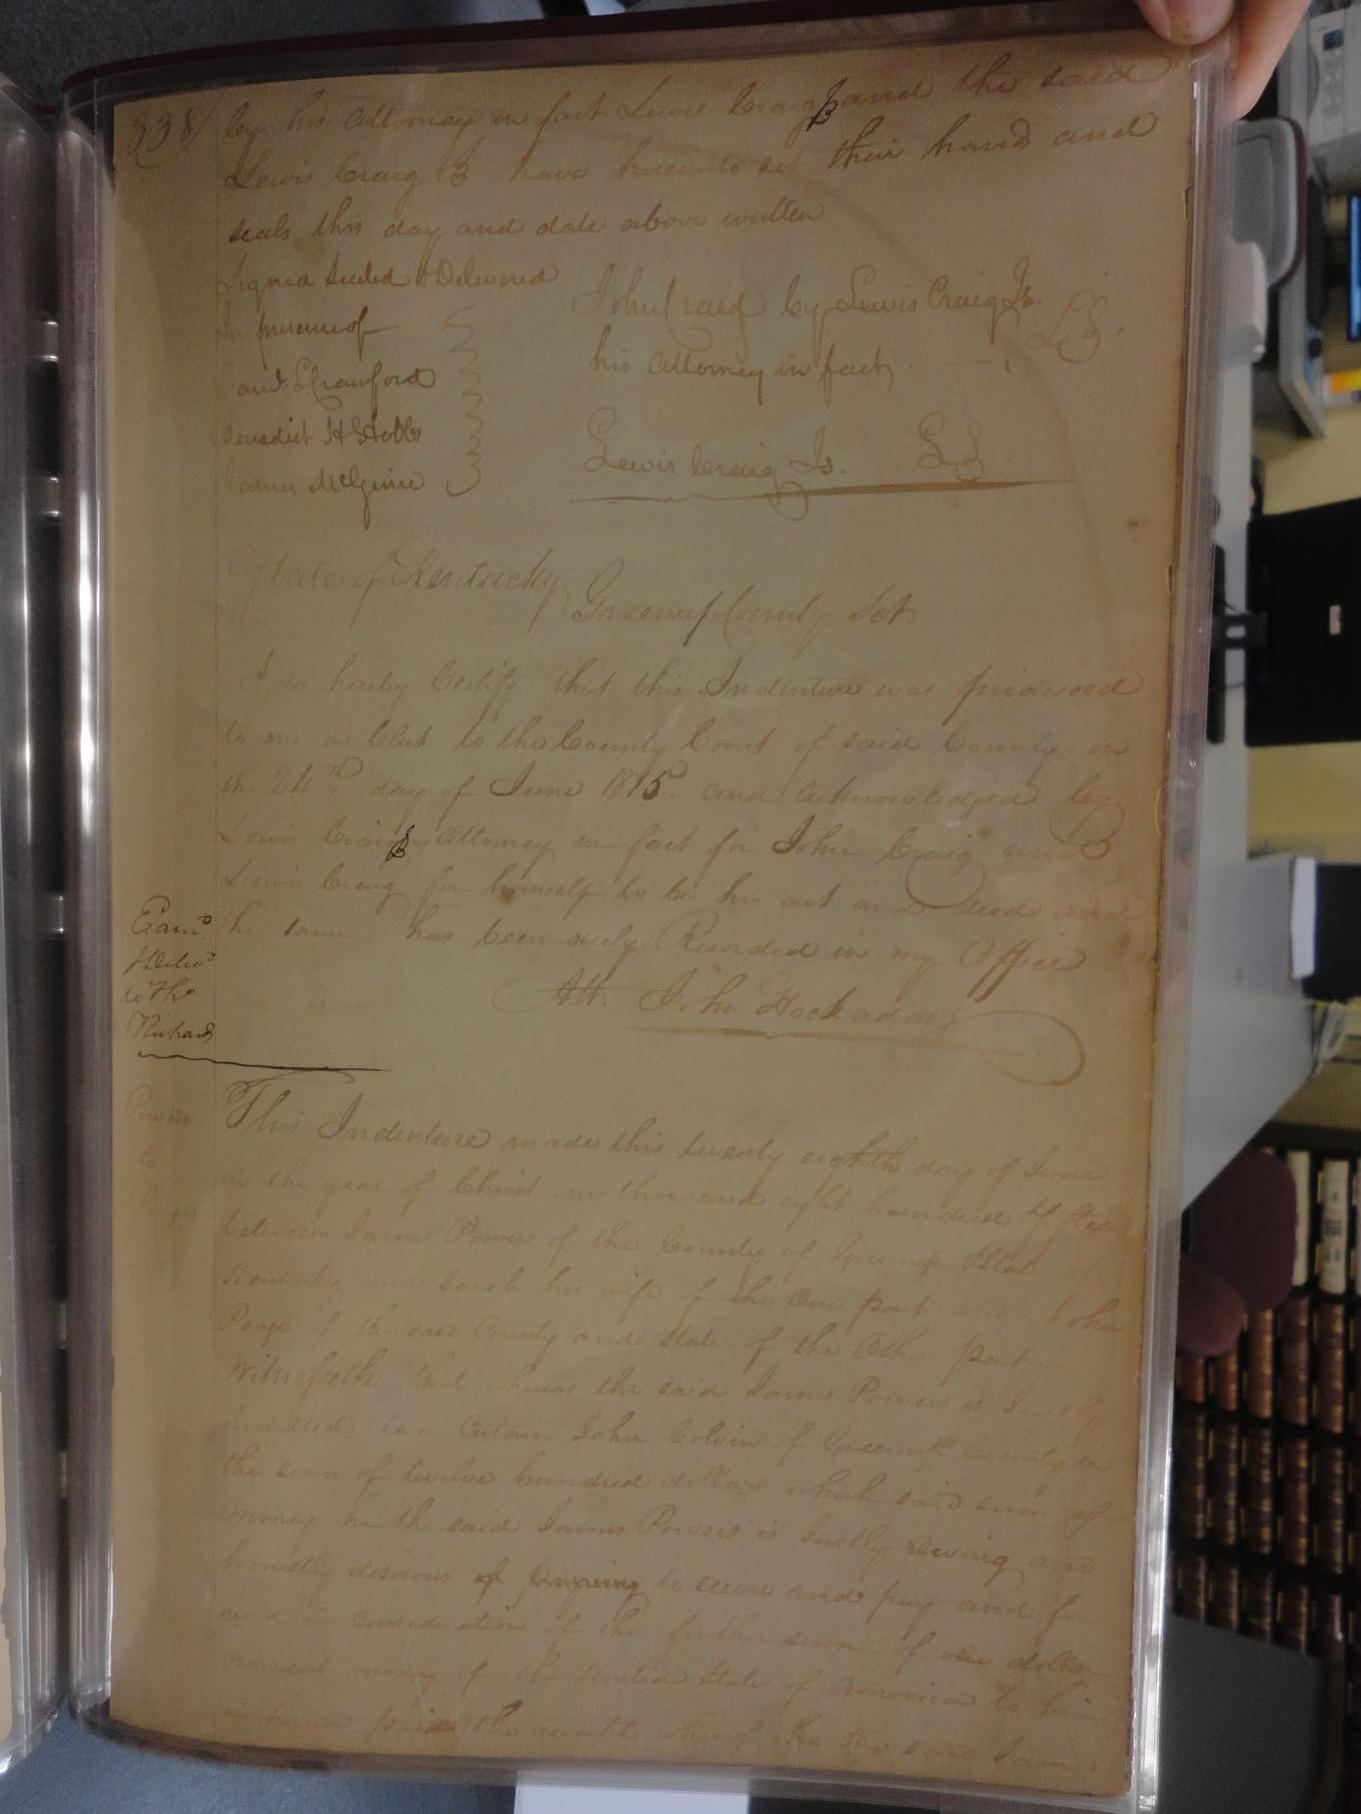 338/ by his attorney in fact Lewis Craig and the said
Lewis Craig have hereunto set their hand and
seals this day and date above written
Signed Sealed & Delivered
In presence of
John Craid by Lewis Craig Js. LS.
his attorney in fact
L. Crawford
Benedict H Stobbs
James McGuire
Lewis Craig Js. LS
State of Kentucky
Greenup County Sct
I do hereby Certify that this Indenture was produced
to me as Clerk to the County Court of said County on
the 24th day of June 1815. and acknowledged by
Lewis Craig attorney in fact for John Craig and
Lewis Craig for himself to be his act and deed and
the same has been duly Recorded in my Office
Att. John Hockaday
Examd
&
to Tho
Richards
Powers
to
This Indenture made this twenty eighth day of June
in the year of Christ one thousand eight hundred fifteen
between James Powers of the County of Greenup State of
Kentucky and Sarah his wife of the One part and John
Poage of the said County and State of the Other part
Witnesseth that whereas the said James Powers is Justly
indebted to a Certain John Colvin of Greenup County in
the sum of twelve hundred dollars which said sum of
money he the said James Powers is Justly owing and
honestly desirous of to secure and pay and for
and in consideration of the further sum of one dollar
current money of the United States of America to him
in hand paid the receipt whereof he the said James